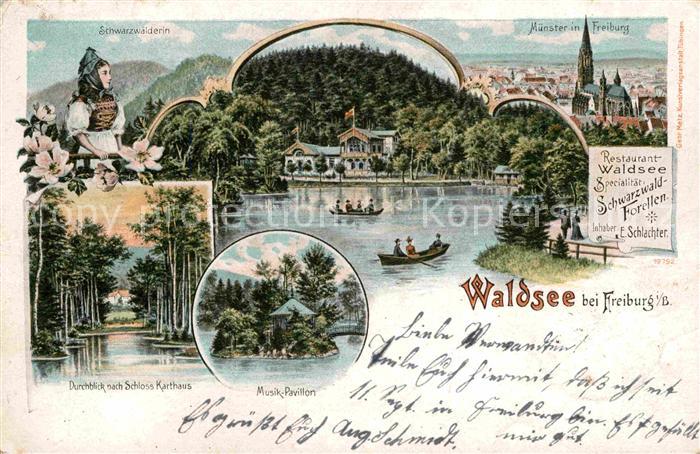 Schwarzwälderin
Münster in Freiburg
Gebr. Metz, Kunstverlagsanstalt, Tübingen
Restaurant-
Waldsee
Specialität:
Schwarzwald-
Forellen.
Inhaber E. Schlachter.
19792
Waldsee bei Freiburg i/B.
Durchblick nach Schloss Karthaus
Musik-Pavillon
Liebe Verwandten!
Teile Euch hiermit, daß ich seit
11. Sept. in Freiburg bin. Es gefällt
mir gut.
Es grüßt Euch Aug. Schmidt.